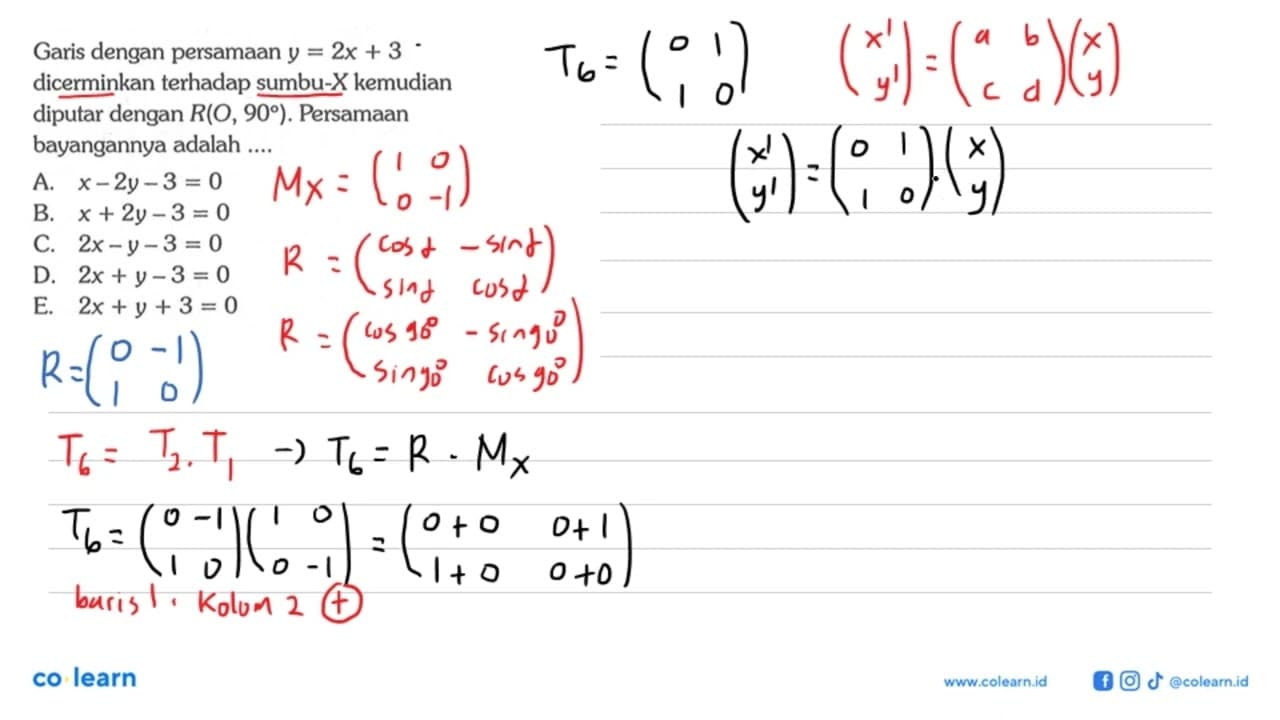 Garis dengan persamaan y = 2x + 3
dicerminkan terhadap sumbu-X kemudian
diputar dengan R(O, 90°). Persamaan
bayangannya adalah ....
A. x – 2y – 3 = 0
B. x + 2y – 3 = 0
C. 2x – y – 3 = 0
D. 2x + y – 3 = 0
E. 2x + y + 3 = 0
Mx = (1 0
0 -1)
R = (cos α - sin α
sin α cos α)
R = (cos 90° - sin 90°
sin 90° cos 90°)
R = (0 -1
1 0)
T6 = T2 . T1 → T6 = R . Mx
T6 = (0 -1 (1 0 = (0 + 0 0 + 1
1 0) 0 -1) 1 + 0 0 + 0)
baris 1 . Kolom 2 +
T6 = (0 1
1 0)
(x' = (a b (x
y') c d) y)
(x' = (0 1 . (x
y') 1 0) y)
co learn
www.colearn.id
@colearn.id